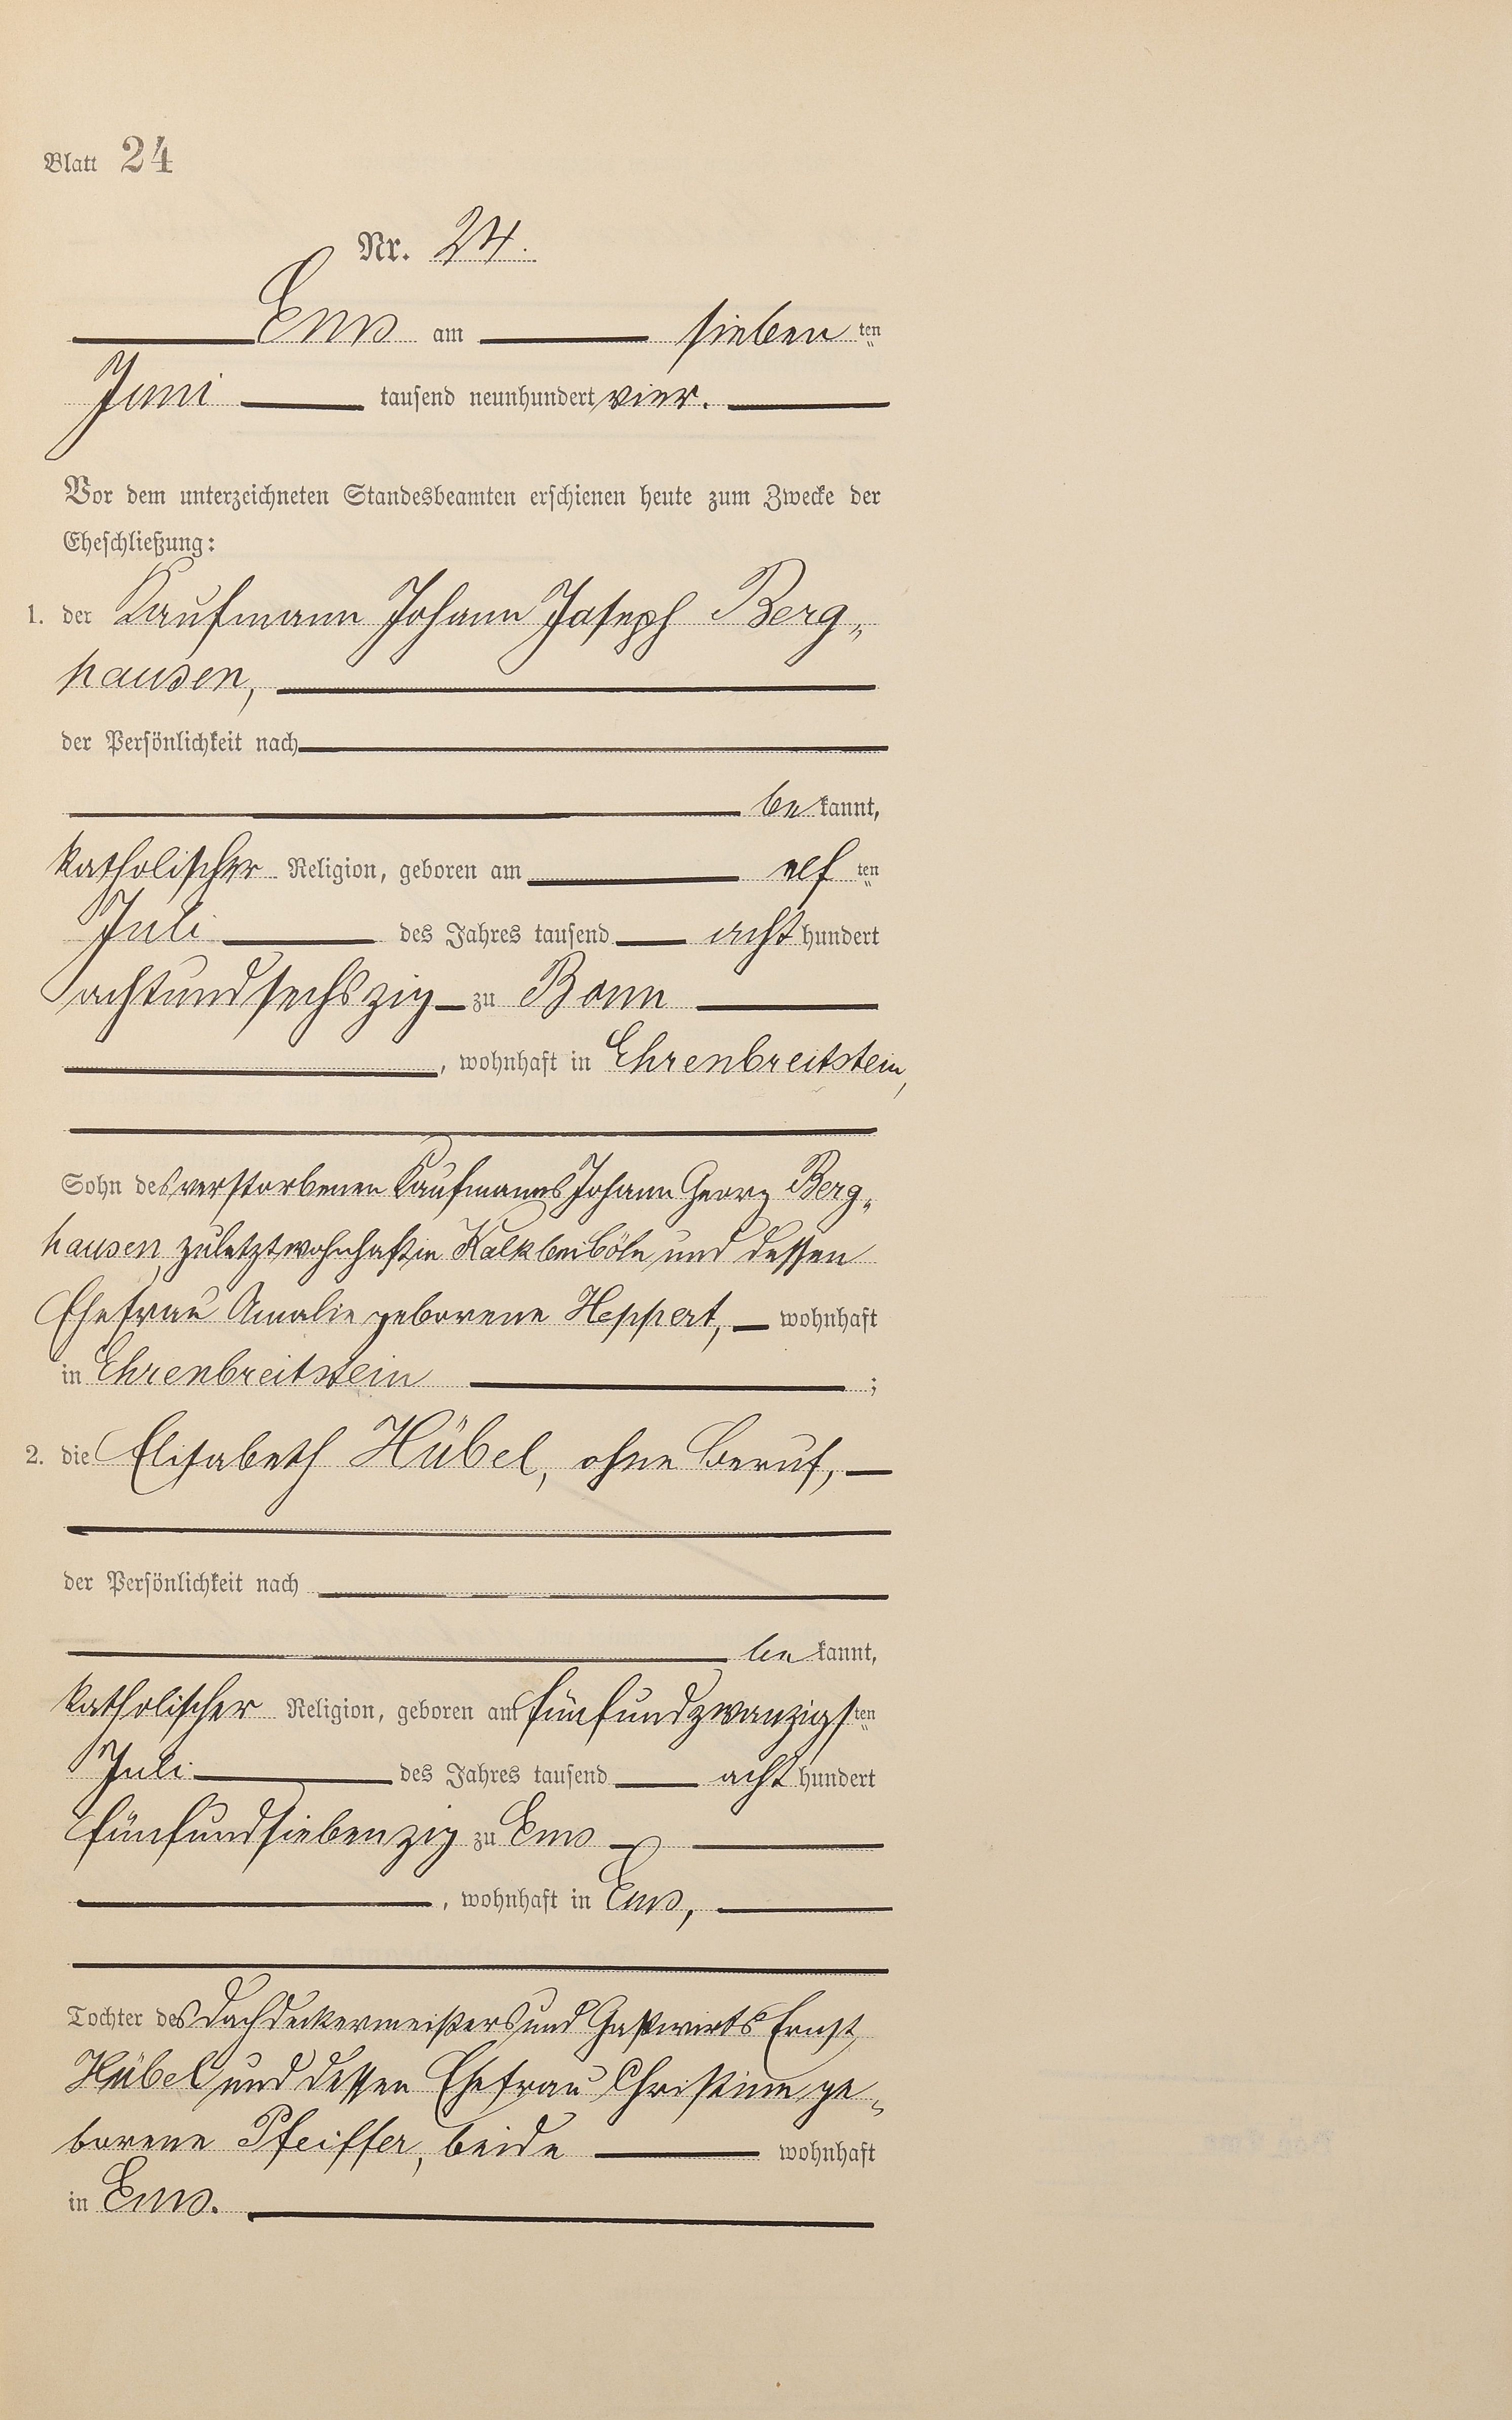 Blatt 24
Nr. 24.
Ems am sieben ten
Juni tausend neunhundert vier.
Vor dem unterzeichneten Standesbeamten erschienen heute zum Zwecke der
Eheschließung:
1. der Kaufmann Johann Joseph Berg„
hausen,
der Persönlichkeit nach
be kannt,
katholischer Religion, geboren am elf ten
Juli des Jahres tausend acht hundert
achtundsechszig zu Bonn
, wohnhaft in Ehrenbreitstein,
Sohn des verstorbenen Kaufmannes Johann Georg Berg„
hausen, zuletzt wohnhaft in Kalk bei Cöln und dessen
Ehefrau Amalie geborene Heppert, wohnhaft
in Ehrenbreitstein ;
2. die Elisabeth Hübel, ohne Beruf,
der Persönlichkeit nach
be kannt,
katholischer Religion, geboren am fünfundzwanzigs ten
Juli des Jahres tausend acht hundert
fünfundsiebenzig zu Ems
, wohnhaft in Ems,
Tochter des Dachdeckermeisters und Gastwirts Ernst
Hübel und dessen Ehefrau Christine ge„
borene Pfeiffer, beide wohnhaft
in Ems.